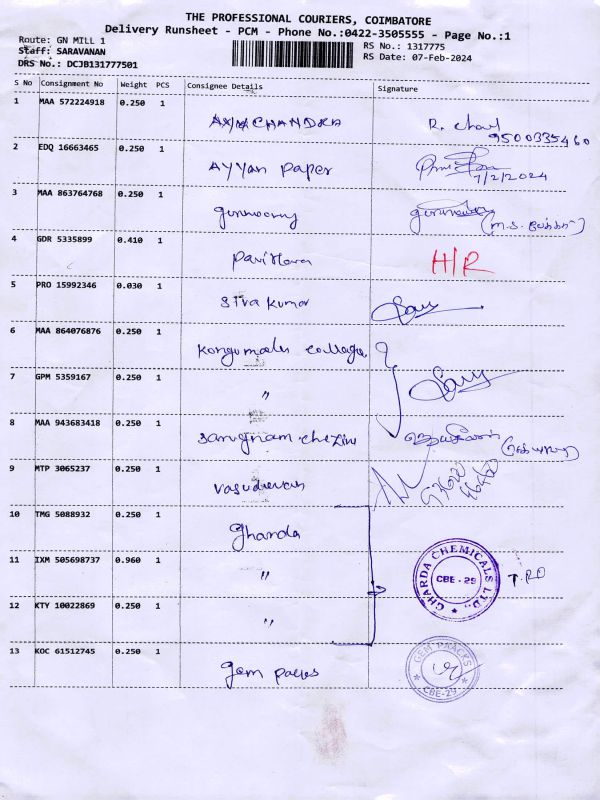 THE PROFESSIONAL COURIERS, COIMBATORE
Delivery Runsheet - PCM - Phone No.:0422-3505555 - Page No.:1
Route: GN MILL 1
Staff: SARAVANAN
DRS No.: DCJB131777501
RS No.: 1317775
RS Date: 07-Feb-2024
S No Consignment No Weight PCS Consignee Details Signature
1 MAA 572224918 0.250 1 R.
9500335460
2 EDQ 16663465 0.250 1 AYYAN Paper
7/2/2024
3 MAA 863764768 0.250 1
4 GDR 5335899 0.410 1 Pavithara H/R
5 PRO 15992346 0.030 1 Siva kumar
6 MAA 864076876 0.250 1 Kongumalu collage
7 GPM 5359167 0.250 1 "
8 MAA 943683418 0.250 1
9 MTP 3065237 0.250 1 Vasudevan
10 TMG 5088932 0.250 1 Gharda
11 IXM 505698737 0.960 1 " GHARDA CHEMICALS LTD., CBE - 29
12 KTY 10022869 0.250 1 "
13 KOC 61512745 0.250 1 Gem paces GEM PAACKS CBE-29